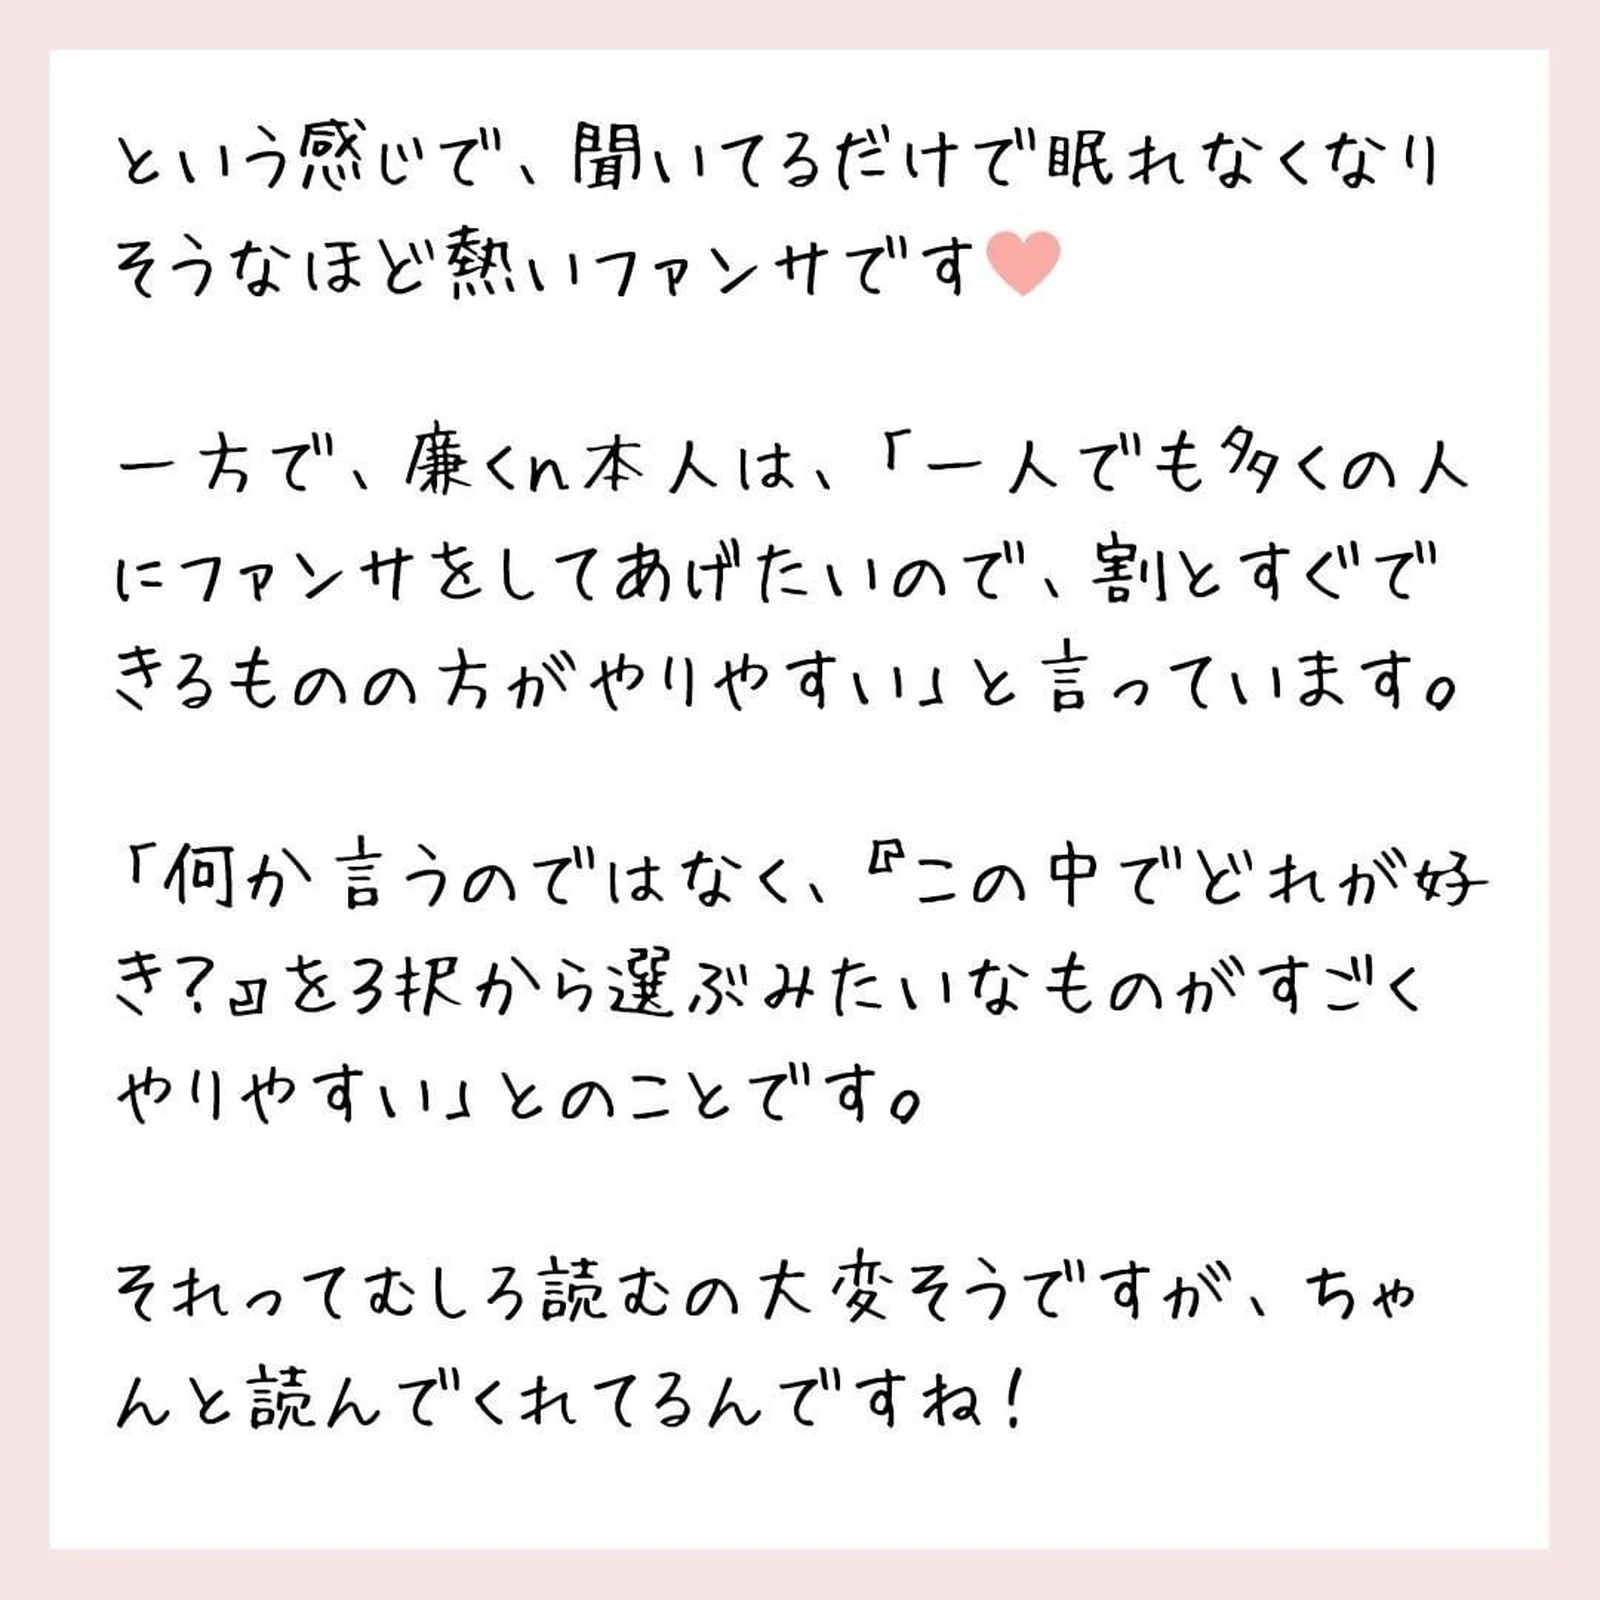 という感じで、聞いてるだけで眠れなくなり
そうなほど熱いファンサです
一方で、廉くn本人は、「一人でも多くの人
にファンサをしてあげたいので、割とすぐで
きるものの方がやりやすい」と言っています。
「何か言うのではなく、『この中でどれが好
き?』を3択から選ぶみたいなものがすごく
やりやすい」とのことです。
それってむしろ読むの大変そうですが、ちゃ
んと読んでくれてるんですね!